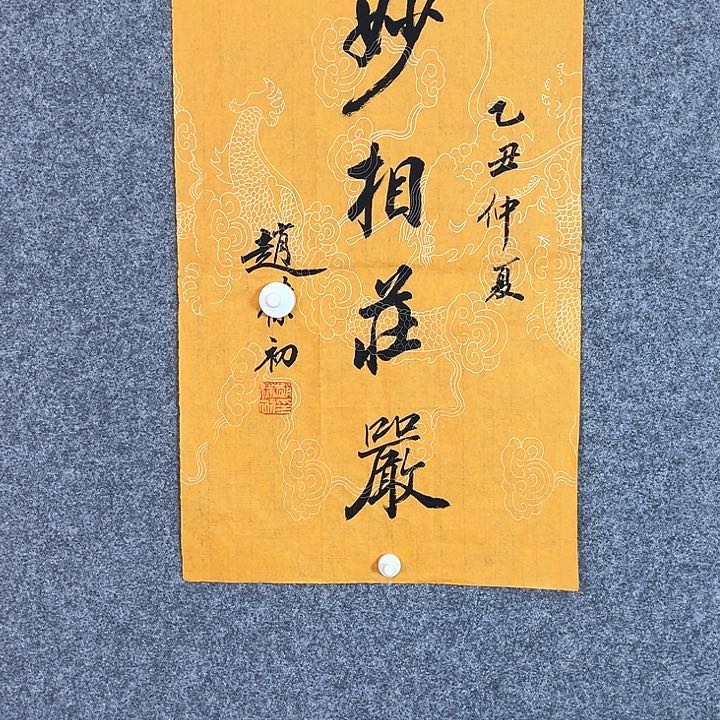 妙相莊嚴
乙丑仲夏
趙初